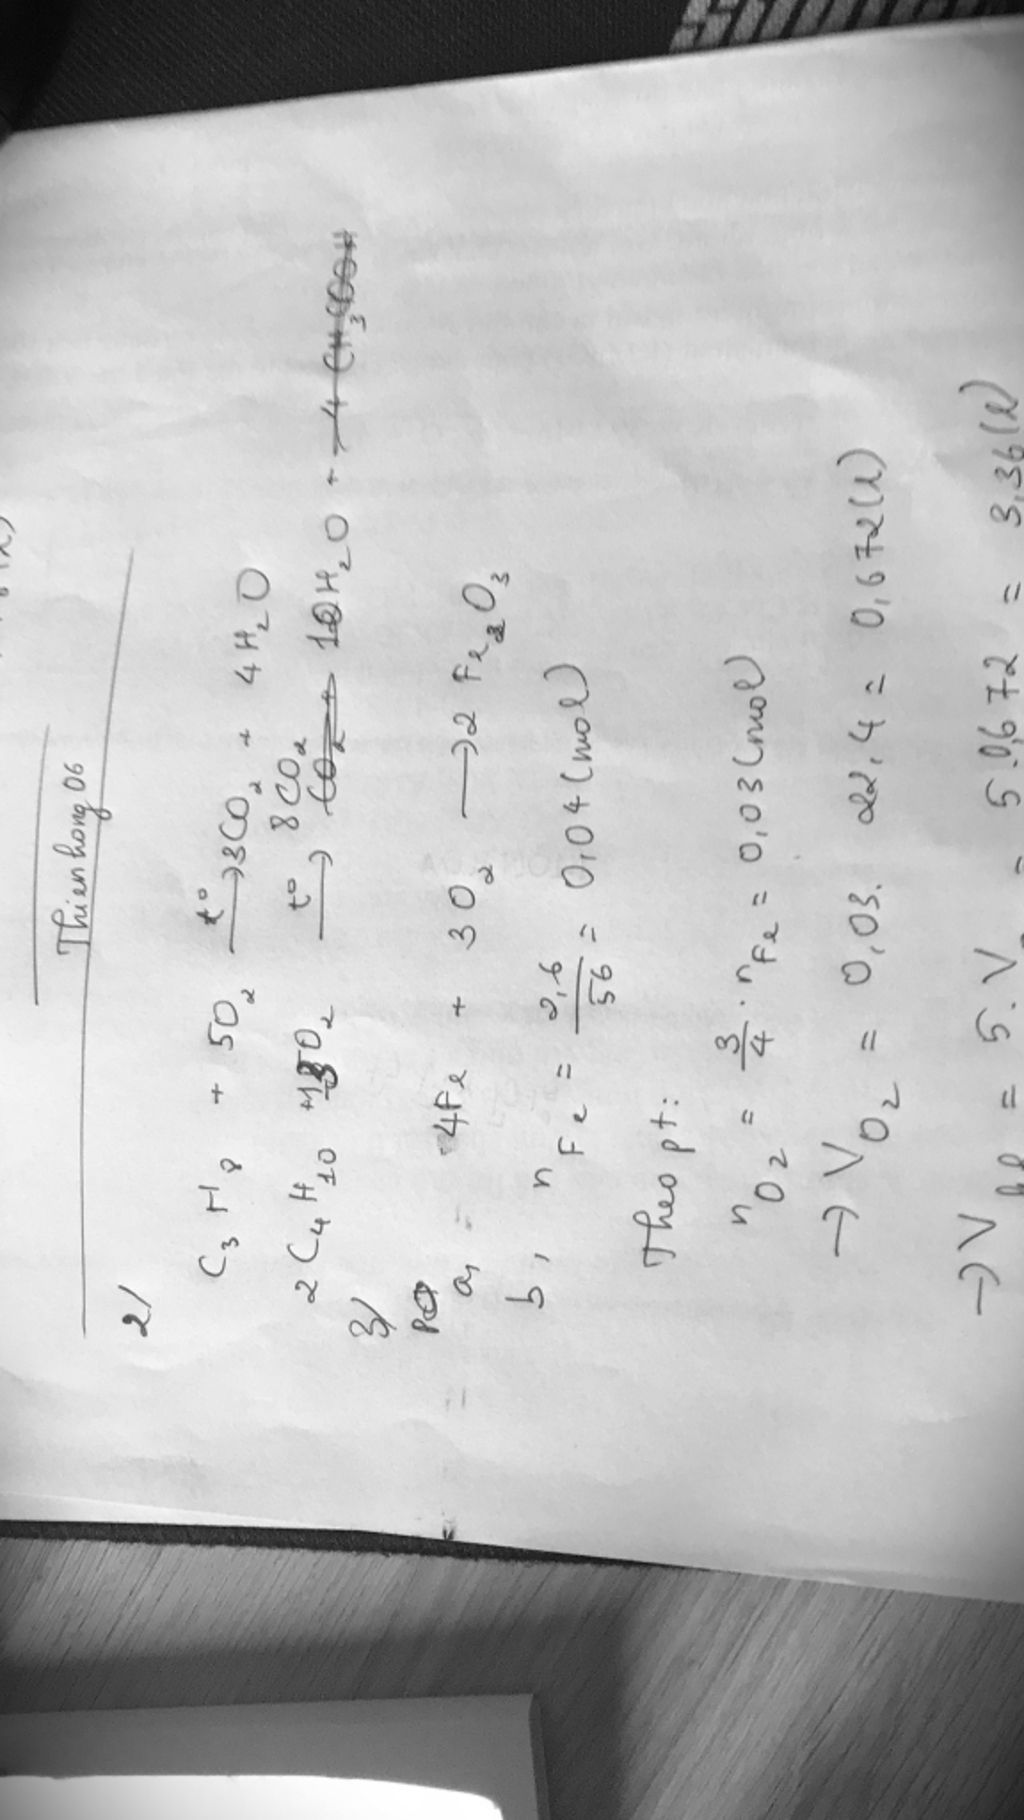 Thienhong 06
2/
C₃H₈ + 5O₂ —t°→ 3CO₂ + 4H₂O
2C₄H₁₀ + 13O₂ —t°→ 8CO₂ + 10H₂O
3/
a, 4Fe + 3O₂ → 2Fe₂O₃
b, n Fe = 2,6/56 = 0,04 (mol)
Theo pt:
n O₂ = 3/4 . n Fe = 0,03 (mol)
→ V O₂ = 0,03. 22,4 = 0,672 (l)
→ V = 5.V = 5.0,672 = 3,36 (l)